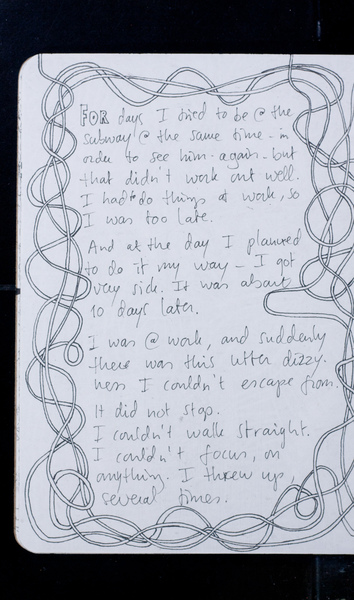 FOR days I tried to be @ the
subway @ the same time - in
order to see him - again - but
that didn't work out well.
I had to do things at work, so
I was too late.
And at the day I planned
to do it my way - I got
very sick. It was about
10 days later.
I was @ work, and suddenly
there was this utter dizzy-
ness I couldn't escape from.
It did not stop.
I couldn't walk straight.
I couldn't focus, on
anything. I threw up,
several times.